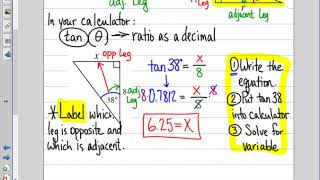 adj. Leg
adjacent
leg
In your calculator:
tan θ → ratio as a decimal
x opp leg
8 adj leg
38°
* Label which
leg is opposite and
which is adjacent.
tan 38° = x/8
8·0.7812 = x/8·8
6.25 = x
① Write the
equation.
② Put tan 38
into calculator
③ Solve for
variable